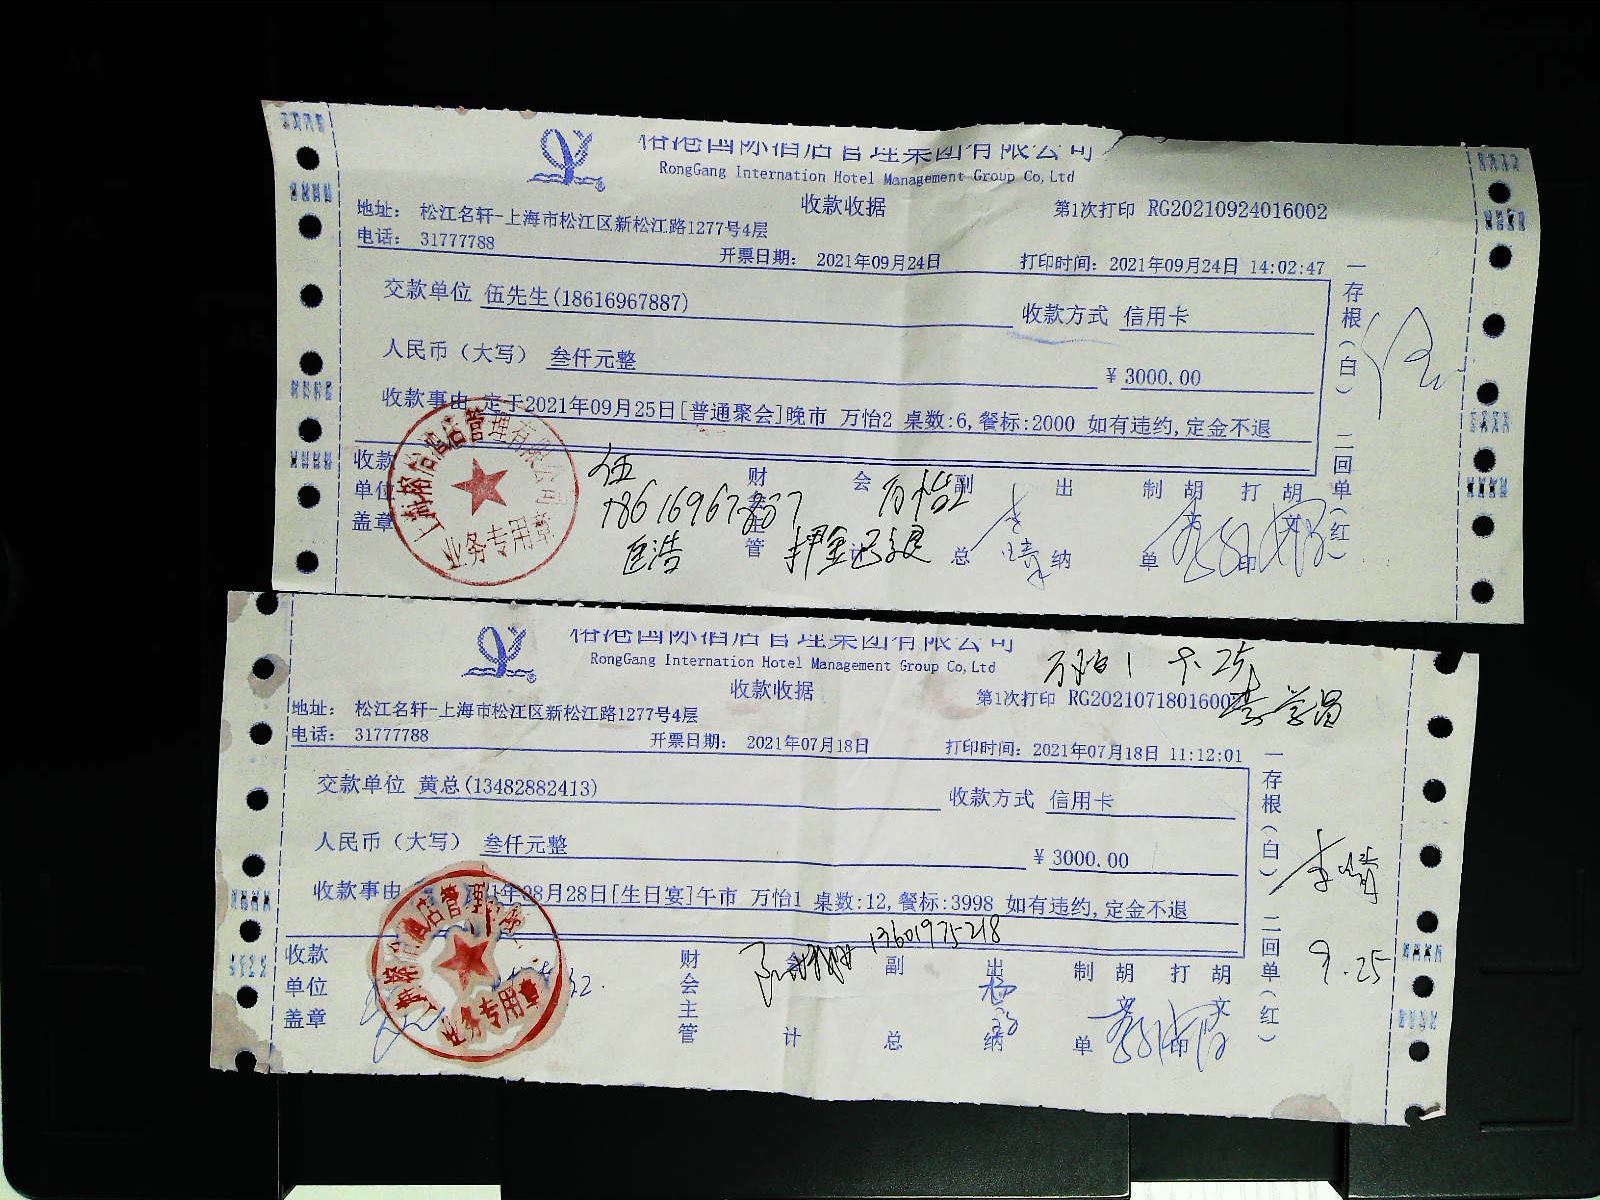 榕港国际酒店管理集团有限公司
RongGang Internation Hotel Management Group Co,Ltd
收款收据
第1次打印 RG20210924016002
地址： 松江名轩-上海市松江区新松江路1277号4层
电话： 31777788
开票日期： 2021年09月24日
打印时间：2021年09月24日 14:02:47
交款单位 伍先生(18616967887)
收款方式 信用卡
人民币（大写） 叁仟元整
¥ 3000.00
收款事由 定于2021年09月25日[普通聚会]晚市 万怡2 桌数:6,餐标:2000 如有违约,定金不退
一存根（白） 二回单（红）
收款单位盖章
业务专用章
财会主管
会计
副总
出纳
制单
胡文
打印
胡文
伍
18616967887
万怡2
匡浩
押金已退
榕港国际酒店管理集团有限公司
RongGang Internation Hotel Management Group Co,Ltd
万怡1 9.25
收款收据
第1次打印 RG2021071801600
李学昌
地址： 松江名轩-上海市松江区新松江路1277号4层
电话： 31777788
开票日期： 2021年07月18日
打印时间：2021年07月18日 11:12:01
交款单位 黄总(13482882413)
收款方式 信用卡
人民币（大写） 叁仟元整
¥ 3000.00
收款事由 1年08月28日[生日宴]午市 万怡1 桌数:12,餐标:3998 如有违约,定金不退
一存根（白） 二回单（红）
13601975218
收款单位盖章
业务专用章
财会主管
会计
副总
出纳
制单
胡文
打印
胡文
9.25